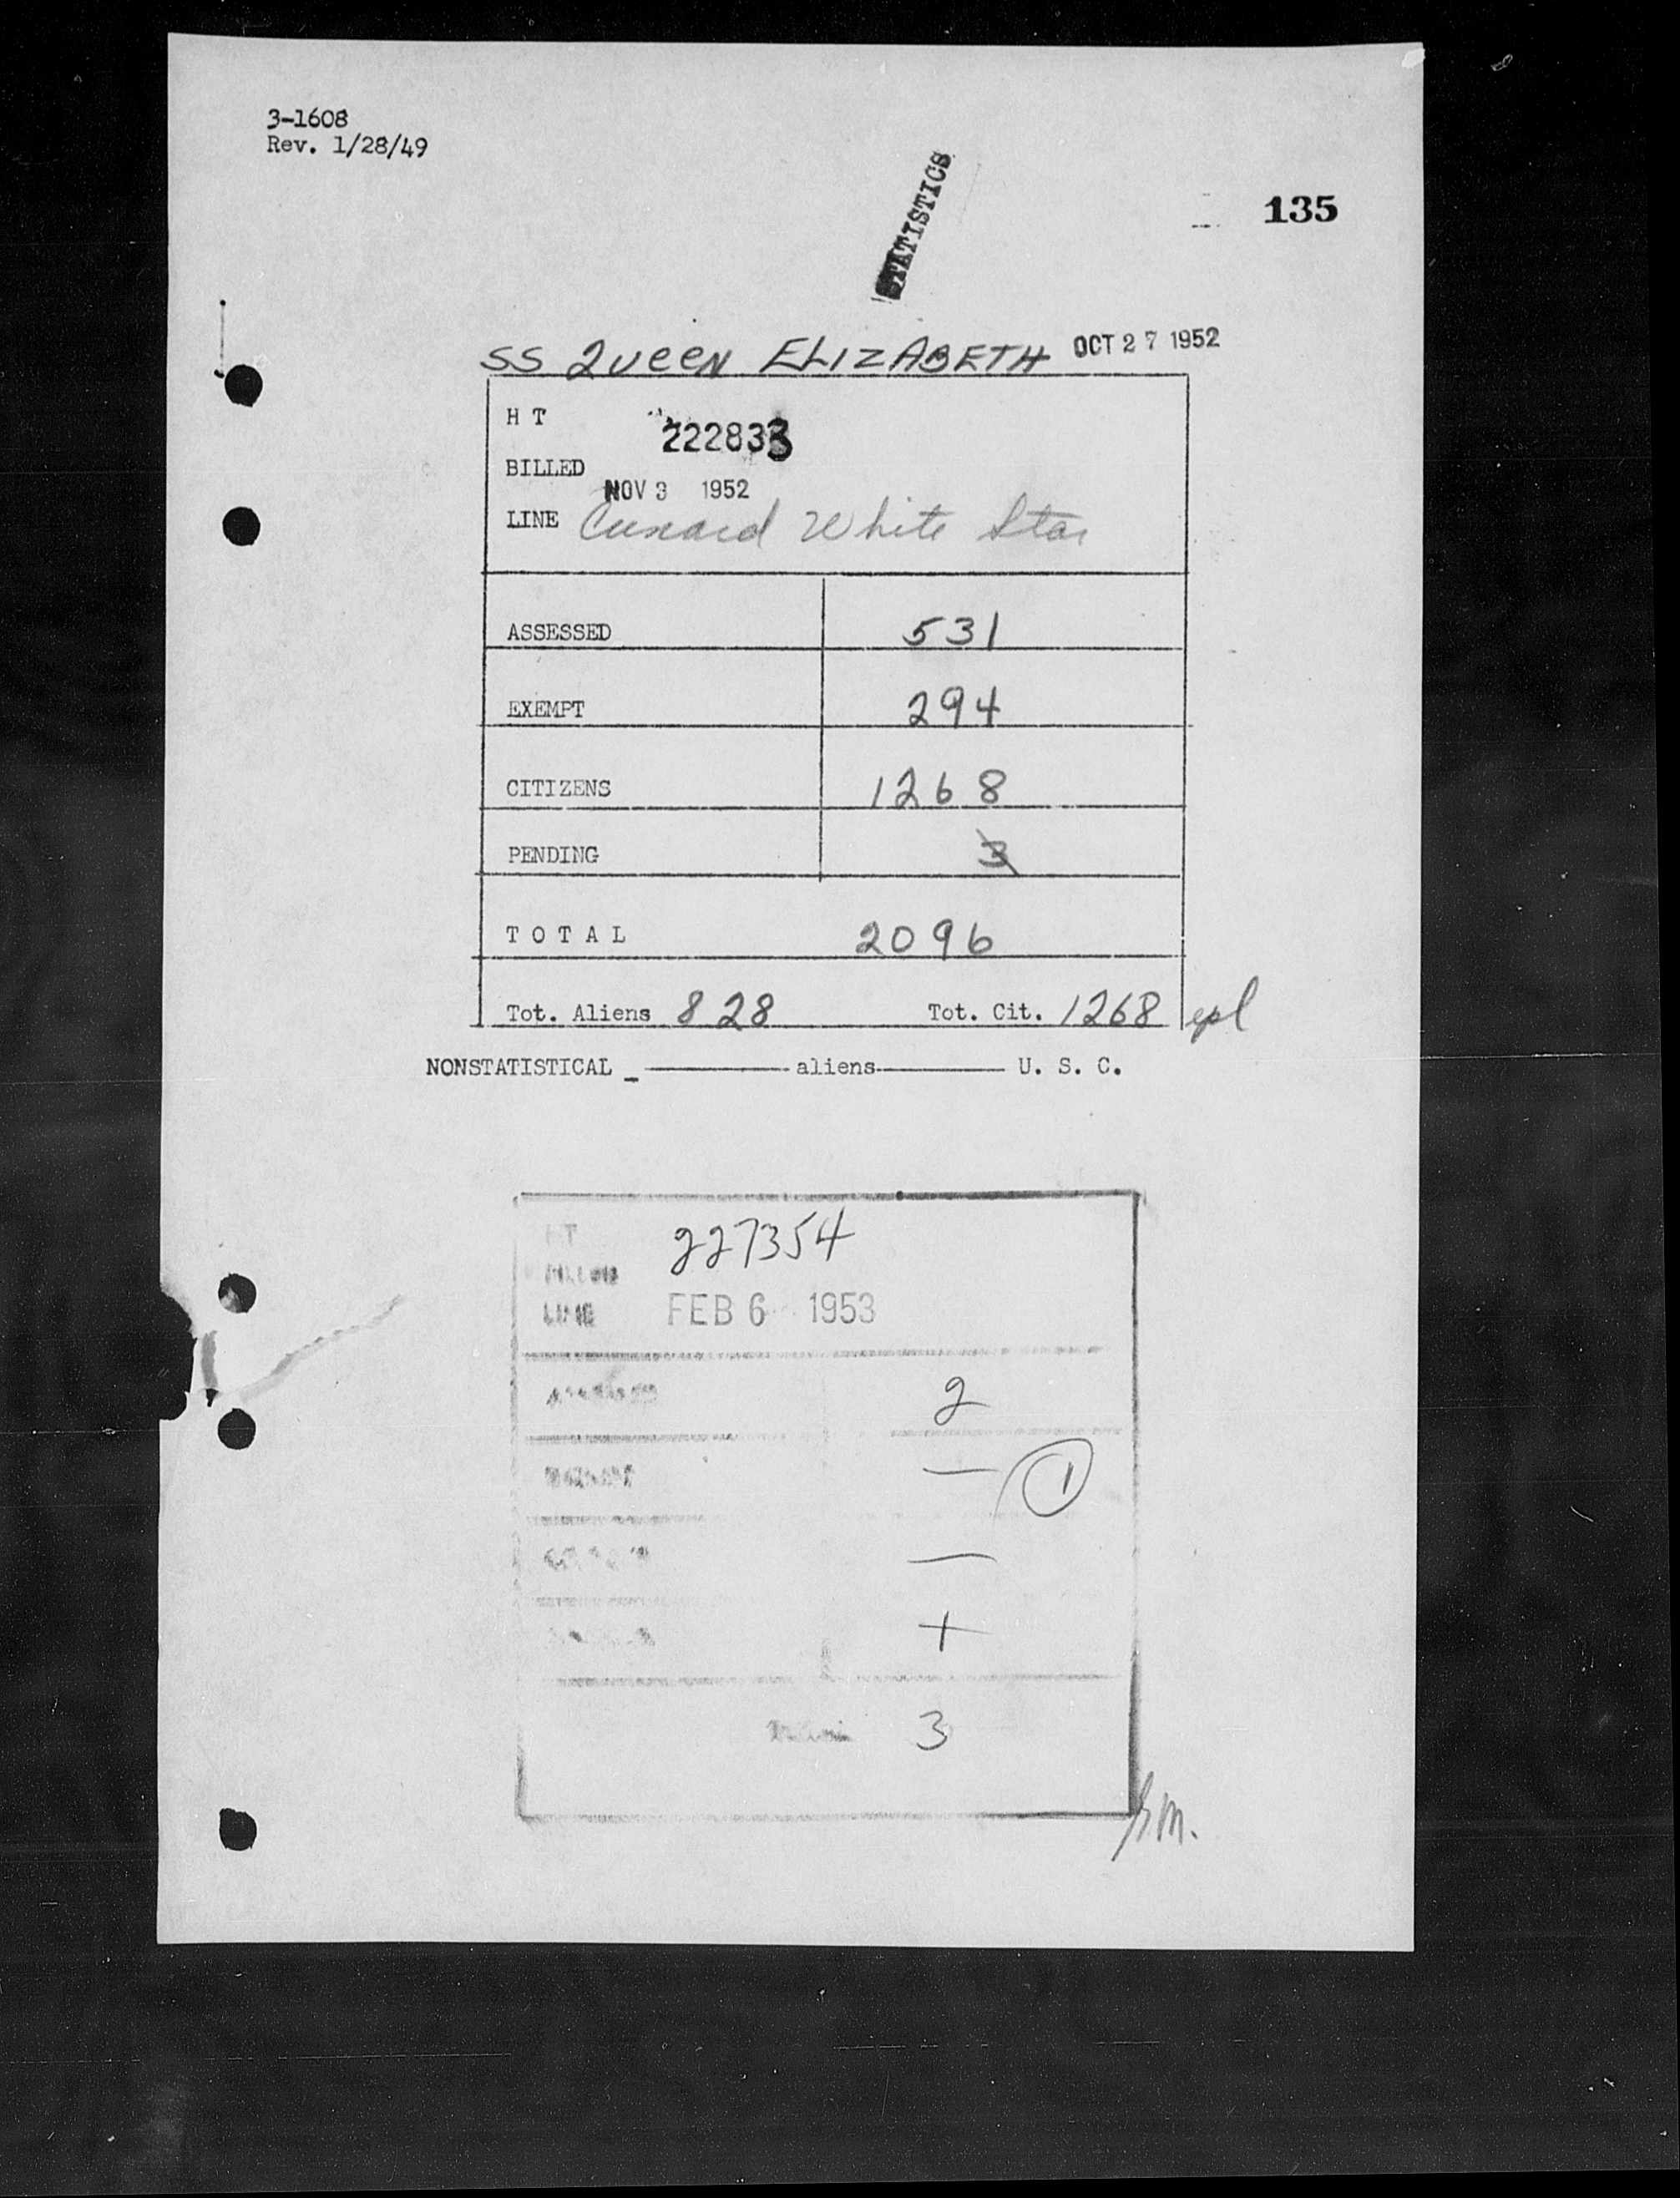 3-1608
Rev. 1/28/49
STATISTICS
135
SS QUEEN ELIZABETH OCT 27 1952
H T 222833
BILLED
NOV 3 1952
LINE Cunard White Star
ASSESSED 531
EXEMPT 294
CITIZENS 1268
PENDING 3
T O T A L 2096
Tot. Aliens 828 Tot. Cit. 1268 epl
NONSTATISTICAL _ aliens U. S. C.
HT 227354
LINE FEB 6 1953
2
— 1
—
+
3